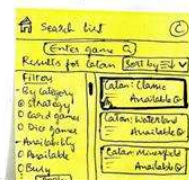 Search list
Enter game
Results for Catan: Sort by
Filters
- By category
Strategy
Card games
Dice games
- Availability
Available
Busy
Catan: Classic
Available
Catan: Waterland
Available
Catan: Minesfield
Available